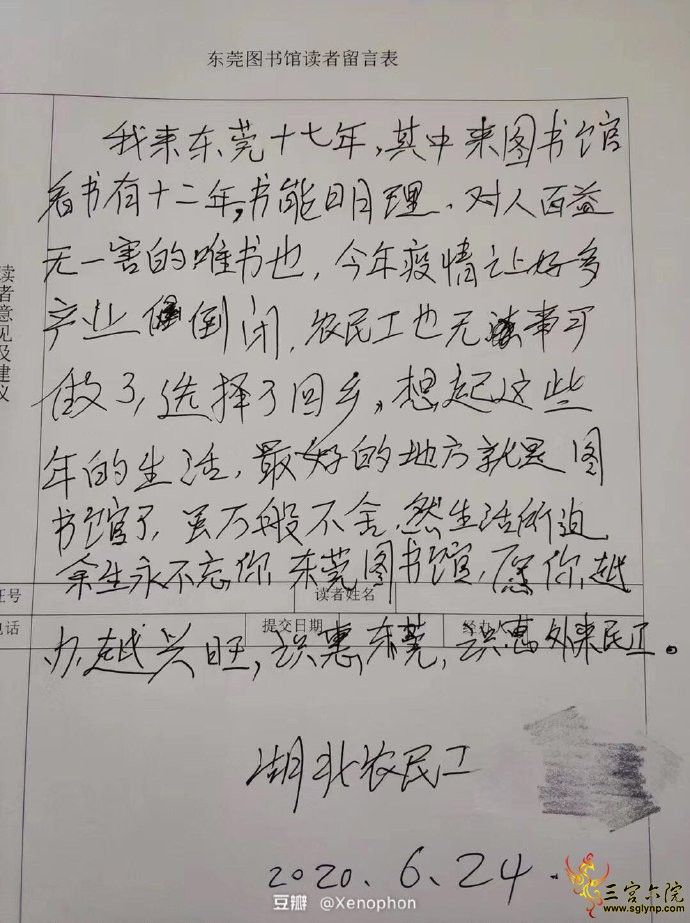 东莞图书馆读者留言表
我来东莞十七年，其中来图书馆
看书有十二年，书能明理、对人百益
无一害的唯书也，今年疫情让好多
产业倒闭，农民工也无事可
做了，选择了回乡，想起这些
年的生活，最好的地方就是图
书馆了，虽万般不舍，然生活所迫
余生永不忘你，东莞图书馆，愿你越
办越兴旺，识惠东莞，识惠外来民工。
读者意见及建议
证号
读者姓名
电话
提交日期
经办人
湖北农民工
2020、6、24.
豆瓣 @Xenophon
三宫六院
www.sglynp.com